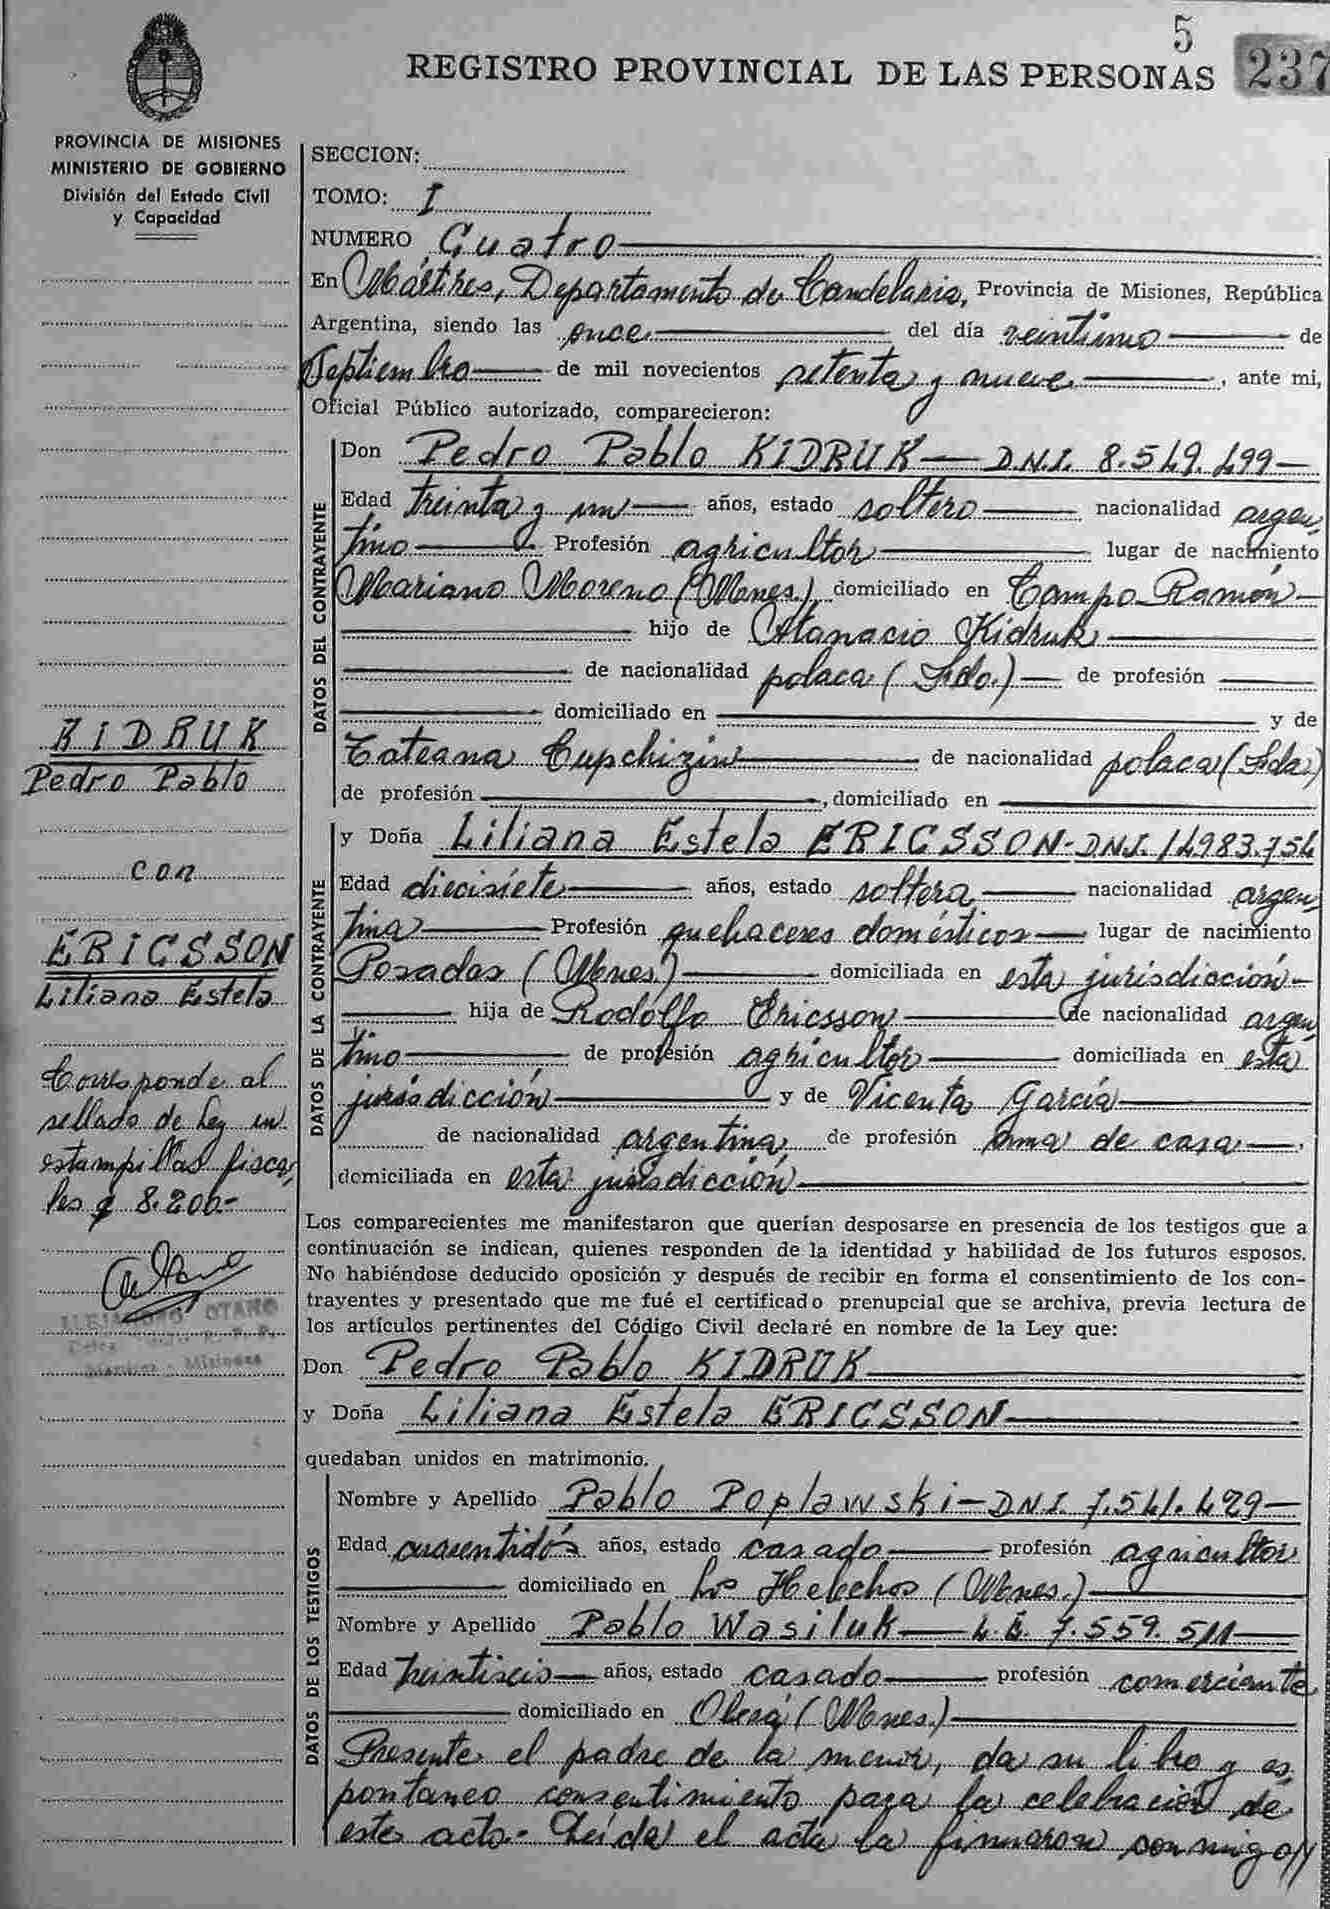 5
REGISTRO PROVINCIAL DE LAS PERSONAS 237
PROVINCIA DE MISIONES
MINISTERIO DE GOBIERNO
División del Estado Civil
y Capacidad
KIDRUK
Pedro Pablo
con
ERICSSON
Liliana Estela
Corresponde al
sellado de Ley en
estampillas fisca
les $ 8.200.-
OTAÑO
Martires - Misiones
SECCION:
TOMO: I
NUMERO Cuatro
En Mártires, Departamento de Candelaria, Provincia de Misiones, República
Argentina, siendo las once del día veintiuno de
Septiembre de mil novecientos setenta y nueve, ante mi,
Oficial Público autorizado, comparecieron:
DATOS DEL CONTRAYENTE
Don Pedro Pablo KIDRUK - D.N.I. 8.549.499-
Edad treinta y un años, estado soltero nacionalidad argen
tino Profesión agricultor lugar de nacimiento
Mariano Moreno (Mnes.) domiciliado en Campo Ramón-
hijo de Atanacio Kidruk
de nacionalidad polaca (Fdo.) de profesión
domiciliado en y de
Tateana Cupchizin de nacionalidad polaca (Fda.)
de profesión , domiciliado en
DATOS DE LA CONTRAYENTE
y Doña Liliana Estela ERICSSON- D.N.I. 14983.754
Edad diecisiete años, estado soltera nacionalidad argen
tina Profesión quehaceres domésticos lugar de nacimiento
Posadas (Mnes.) domiciliada en esta jurisdicción-
hija de Rodolfo Ericsson de nacionalidad argen
tino de profesión agricultor domiciliada en esta
jurisdicción y de Vicenta García
de nacionalidad argentina de profesión ama de casa
domiciliada en esta jurisdicción
Los comparecientes me manifestaron que querían desposarse en presencia de los testigos que a
continuación se indican, quienes responden de la identidad y habilidad de los futuros esposos.
No habiéndose deducido oposición y después de recibir en forma el consentimiento de los con-
trayentes y presentado que me fué el certificado prenupcial que se archiva, previa lectura de
los artículos pertinentes del Código Civil declaré en nombre de la Ley que:
Don Pedro Pablo KIDRUK
y Doña Liliana Estela ERICSSON
quedaban unidos en matrimonio.
DATOS DE LOS TESTIGOS
Nombre y Apellido Pablo Poplawski - D.N.I. 7.541.429-
Edad cuarentidós años, estado casado profesión agricultor
domiciliado en Los Helechos (Mnes.)
Nombre y Apellido Pablo Wasiluk - L.E. 7.559.511
Edad treintiseis años, estado casado profesión comerciante
domiciliado en Oberá (Mnes.)
Presente el padre de la menor, da su libre y es
pontaneo consentimiento para la celebración de
este acto.- Leída el acta la firmaron conmigo//